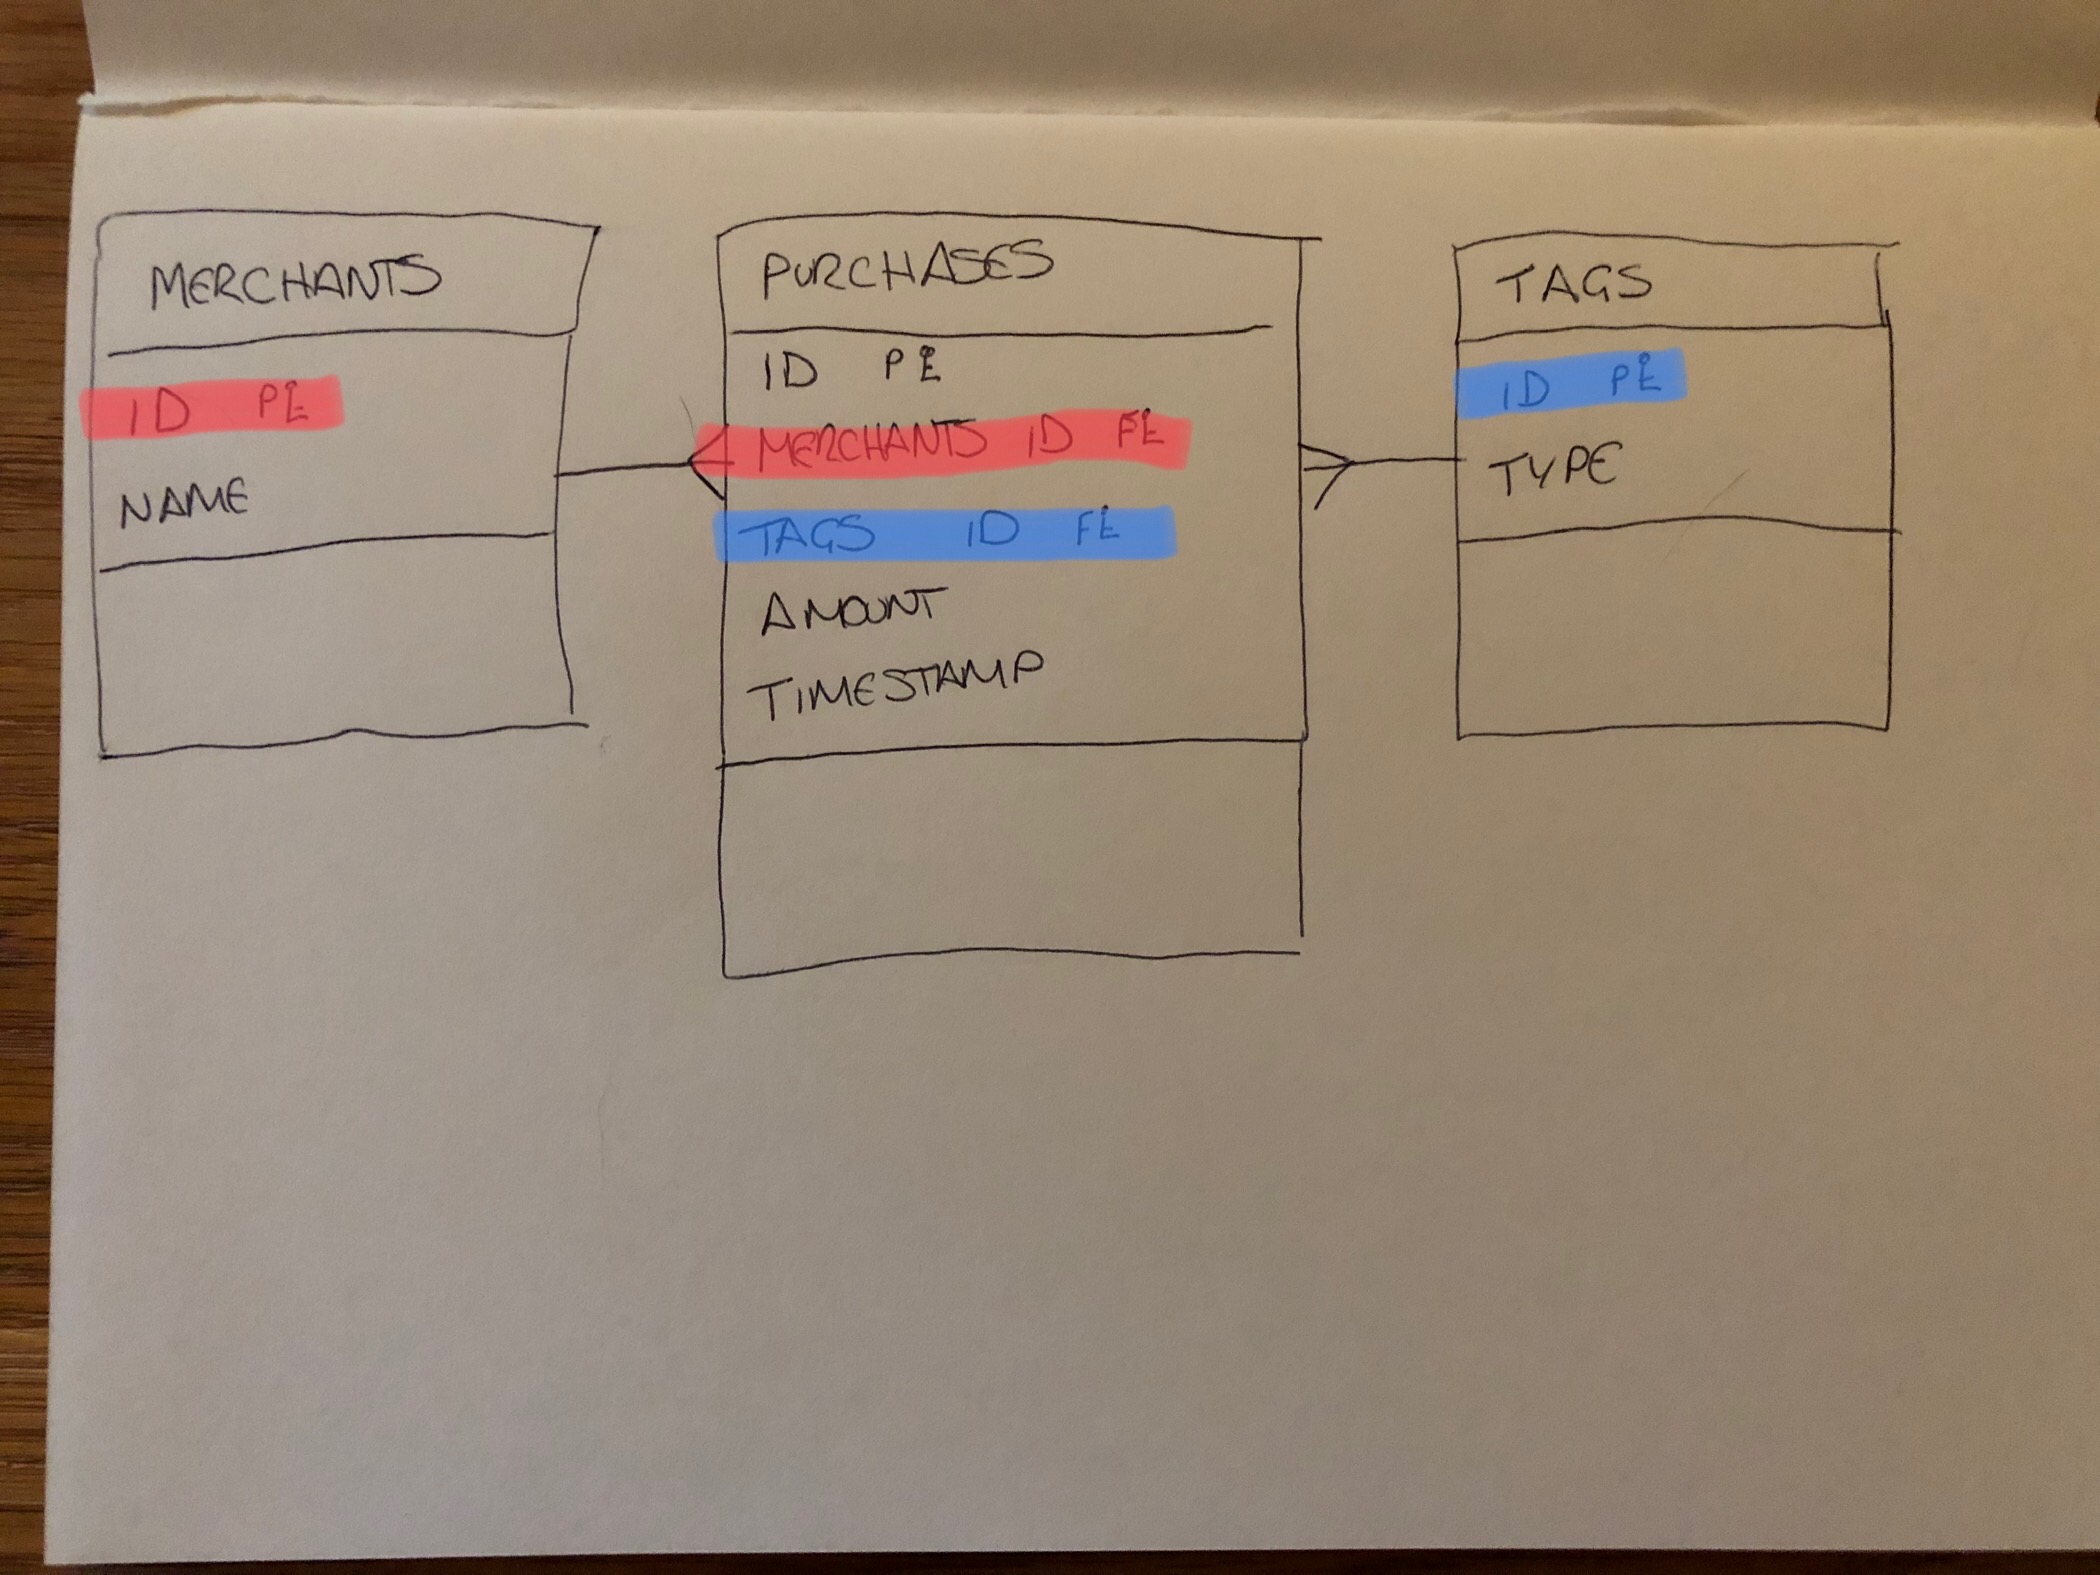 MERCHANTS
ID PE
NAME
PURCHASES
ID PE
MERCHANTS ID FE
TAGS ID FE
AMOUNT
TIMESTAMP
TAGS
ID PE
TYPE